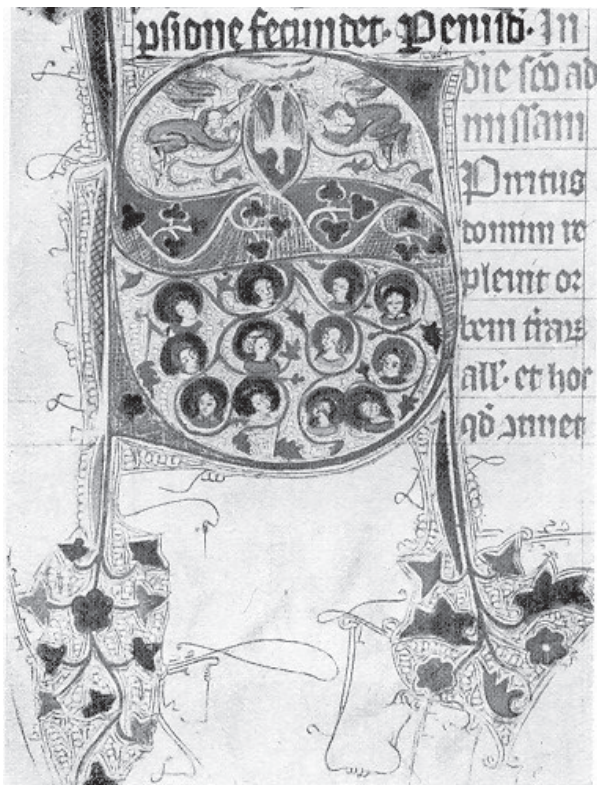 psione fecundet· P eiusd̄· In
die sc̄o ad
missam
Piritus
domini re
pleuit or
bem t̄raꝝ
all̄· et hoc
qd̄ ꝯtinet